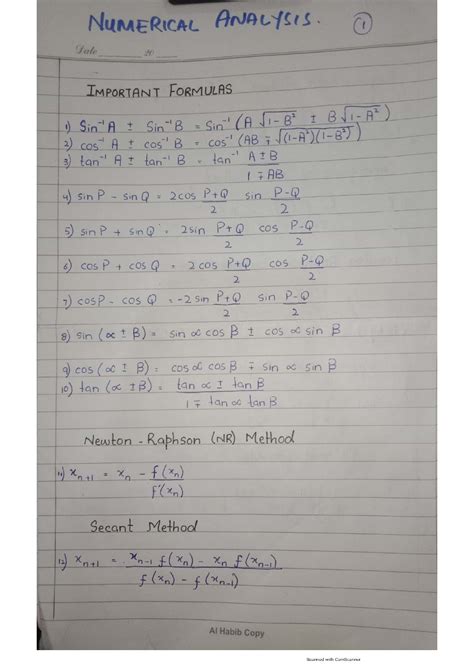 NUMERICAL ANALYSIS. ①
Date ______ 20 ___
IMPORTANT FORMULAS
1) Sin⁻¹A ± Sin⁻¹B = Sin⁻¹(A √(1-B²) ± B √(1-A²))
2) cos⁻¹A ± cos⁻¹B = cos⁻¹(AB ∓ √((1-A²)(1-B²)))
3) tan⁻¹A ± tan⁻¹B = tan⁻¹ (A±B)/(1∓AB)
4) sinP - sinQ = 2cos (P+Q)/2 sin (P-Q)/2
5) sinP + sinQ = 2sin (P+Q)/2 cos (P-Q)/2
6) cosP + cosQ = 2 cos (P+Q)/2 cos (P-Q)/2
7) cosP - cosQ = -2 sin (P+Q)/2 sin (P-Q)/2
8) sin (α ± β) = sin α cos β ± cos α sin β
9) cos (α ± β) = cos α cos β ∓ sin α sin β
10) tan (α ± β) = (tan α ± tan β)/(1 ∓ tan α tan β)
Newton-Raphson (NR) Method
11) xₙ₊₁ = xₙ - f(xₙ)/f'(xₙ)
Secant Method
12) xₙ₊₁ = (xₙ₋₁ f(xₙ) - xₙ f(xₙ₋₁))/(f(xₙ) - f(xₙ₋₁))
Al Habib Copy
Scanned with CamScanner